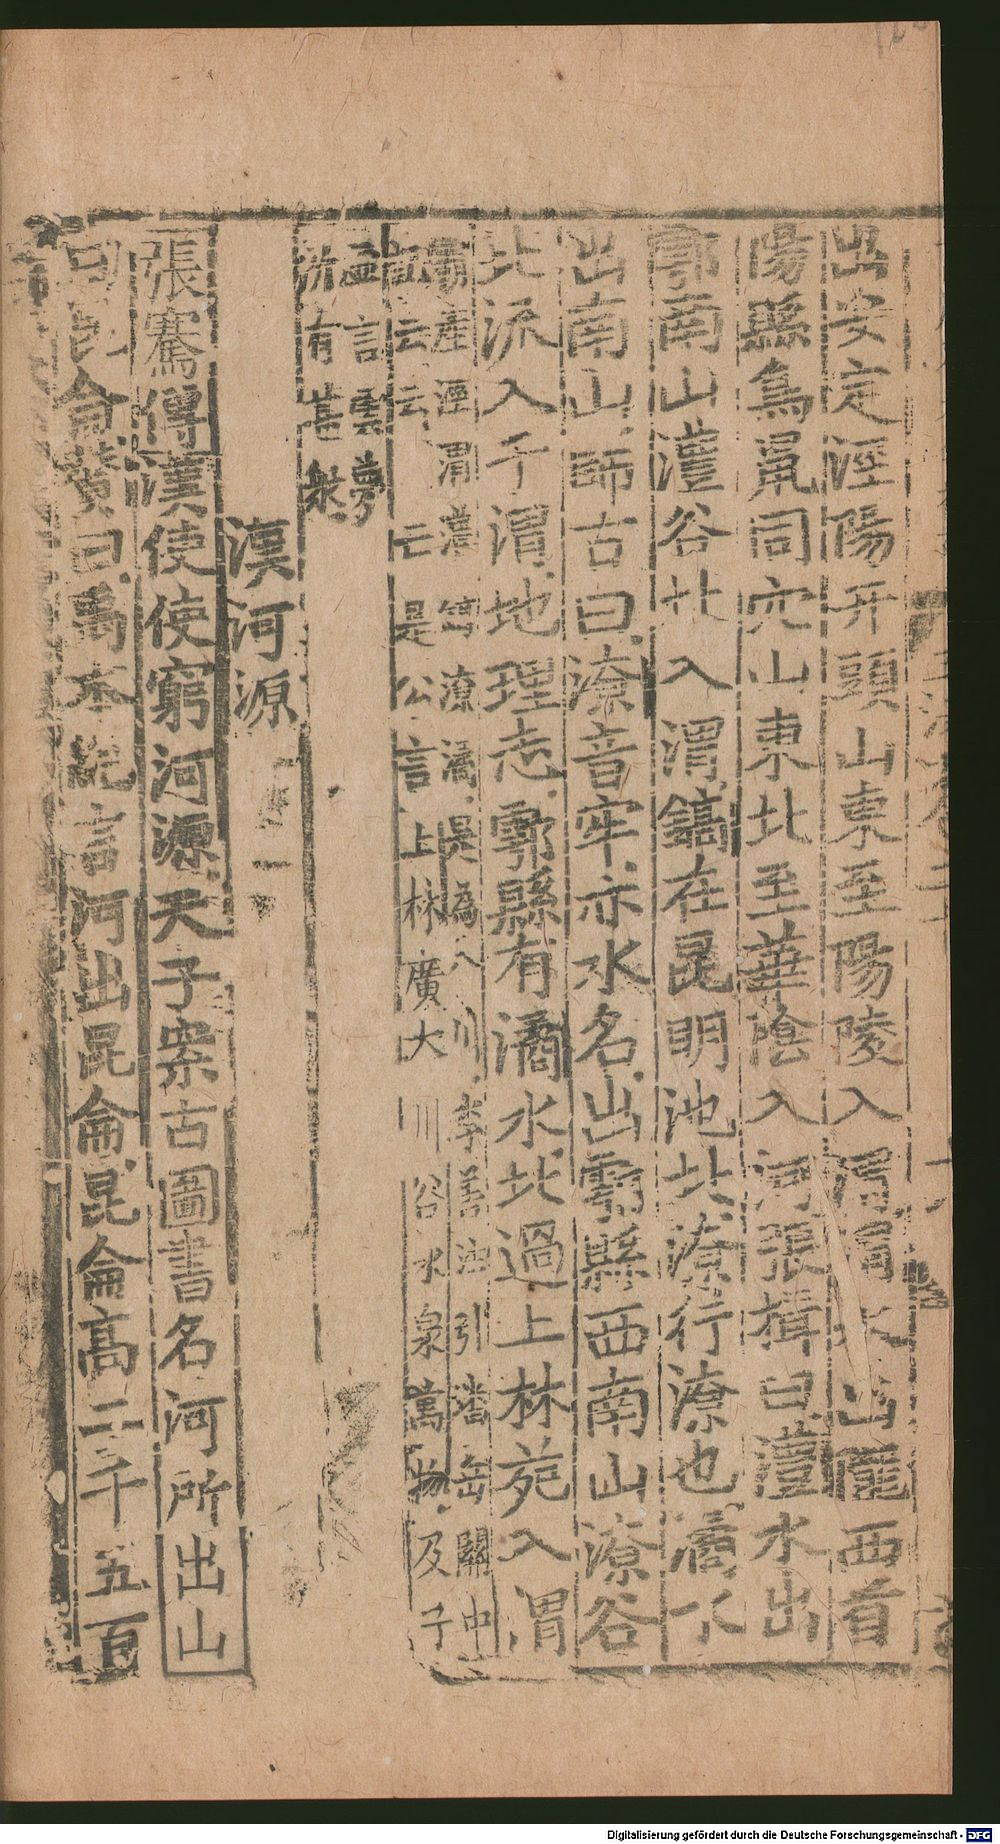 出安定涇陽开頭山東至陽陵入渭渭水出隴西首
陽縣鳥鼠同穴山東北至華陰入河張揖曰灃水出
鄠南山灃谷北入渭鎬在昆明池北潦行潦也潏水
出南山師古曰潦音牢亦水名出鄠縣西南山潦谷
北流入于渭地理志鄠縣有潏水北過上林苑入渭
霸產涇渭灃鎬潦潏是為八川李善注引潘岳關中
記云云云是公言上林廣大川谷水泉萬物及子
孟言雲夢
有甚衆
漢河源
張騫傳漢使使窮河源天子案古圖書名河所出山
曰昆侖贊曰禹本紀言河出昆侖昆侖高二千五百
Digitalisierung gefördert durch die Deutsche Forschungsgemeinschaft - DFG